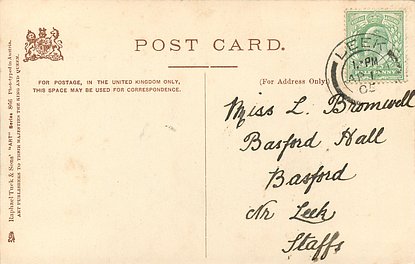 POST CARD.
FOR POSTAGE, IN THE UNITED KINGDOM ONLY,
THIS SPACE MAY BE USED FOR CORRESPONDENCE.
(For Address Only.)
Raphael Tuck & Sons' "ART" Series
Phototyped in Austria.
ART PUBLISHERS TO THEIR MAJESTIES THE KING AND QUEEN.
LEEK
PM
Miss L. Bromwell
Basford Hall
Basford
Nr Leek
Staffs